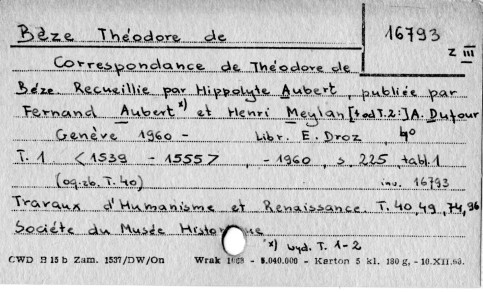 Bèze Théodore de
16793
z III
Correspondance de Théodore de
Bèze. Recueillie par Hippolyte Aubert, publiée par
Fernand Aubert *) et Henri Meylan [+ od T. 2:] A. Dufour
Genève 1960 - Libr. E. Droz 4º
T. 1 <1539 - 1555> , - 1960, s 225, tabl. 1
(og. zb. T. 40) inv. 16793
Travaux d'Humanisme et Renaissance. T. 40, 49, 74, 96
Société du Musée
*) wyd. T. 1-2
CWD B 15 b Zam. 1537/DW/On Wrak - 5.040.000 - Karton 5 kl. 180 g, - 10.XII.63.